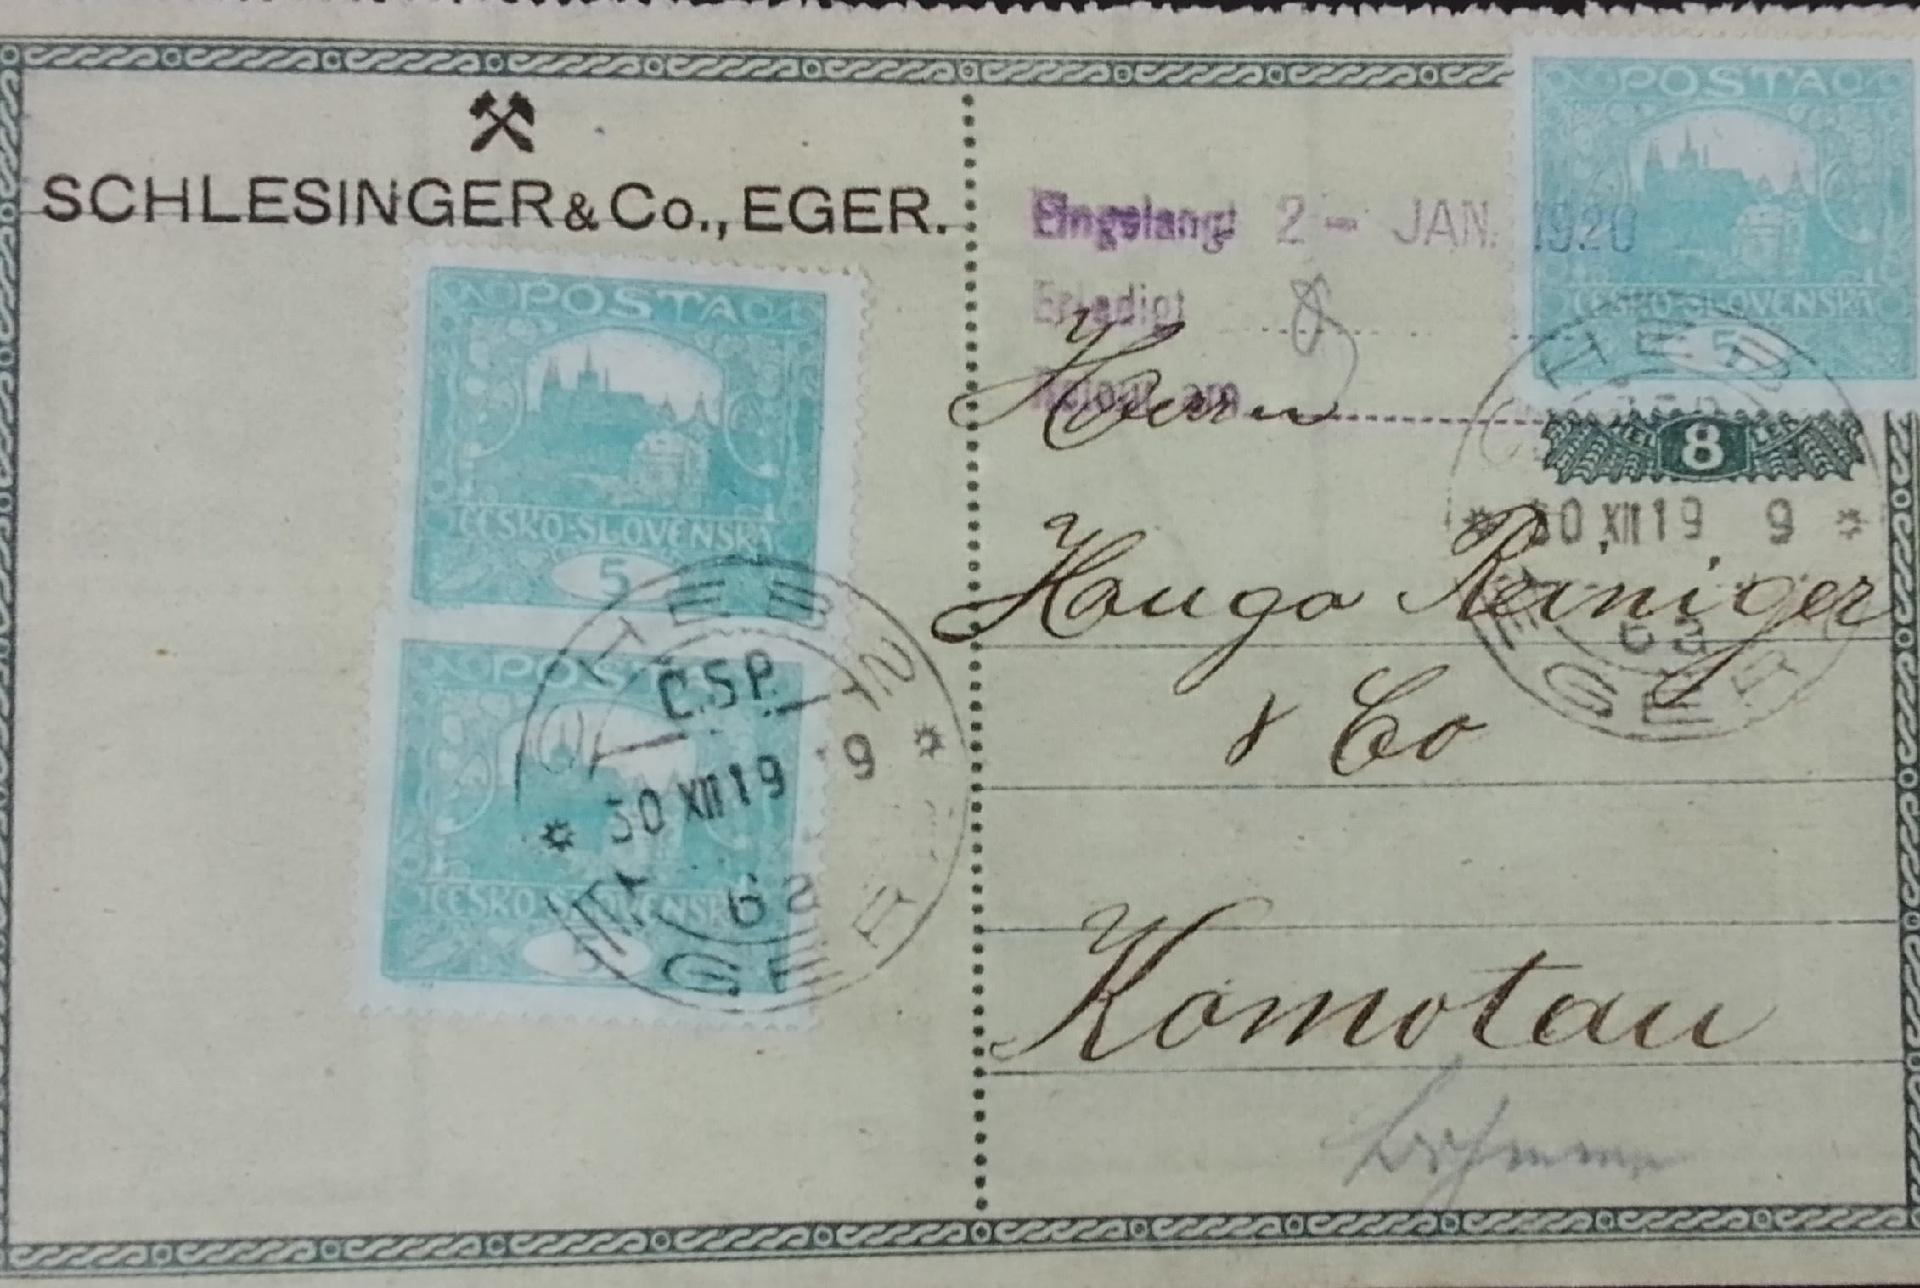 SCHLESINGER & Co., EGER.
POSTA
ČESKO-SLOVENSKÁ
5
POSTA
ČESKO-SLOVENSKÁ
5
CHEB 1
Č.S.P.
* 30 XII 19 9 *
6a
EGER 1
POSTA
ČESKO-SLOVENSKÁ
5
Eingelangt 2 - JAN. 1920
Erledigt
Herrn
8
CHEB
* 30 XII 19 9 *
6a
EGER
Hugo Reiniger
& Co
Komotau